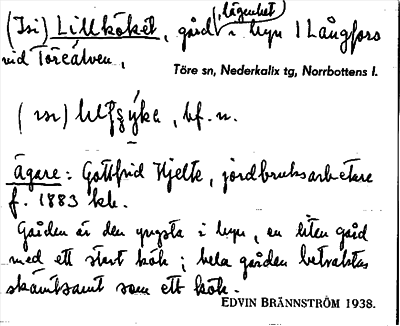 (Isi) Lillköket, gård (, lägenhet) i byn Långfors
vid Töreälven,
Töre sn, Nederkalix tg, Norrbottens l.
bf. n.
Ägare: Gottfrid Hjelte, jordbruksarbetare
f. 1883 här.
Gården är den yngsta i byn, en liten gård
med ett stort kök; hela gården betraktas
skämtsamt som ett kök.
EDVIN BRÄNNSTRÖM 1938.